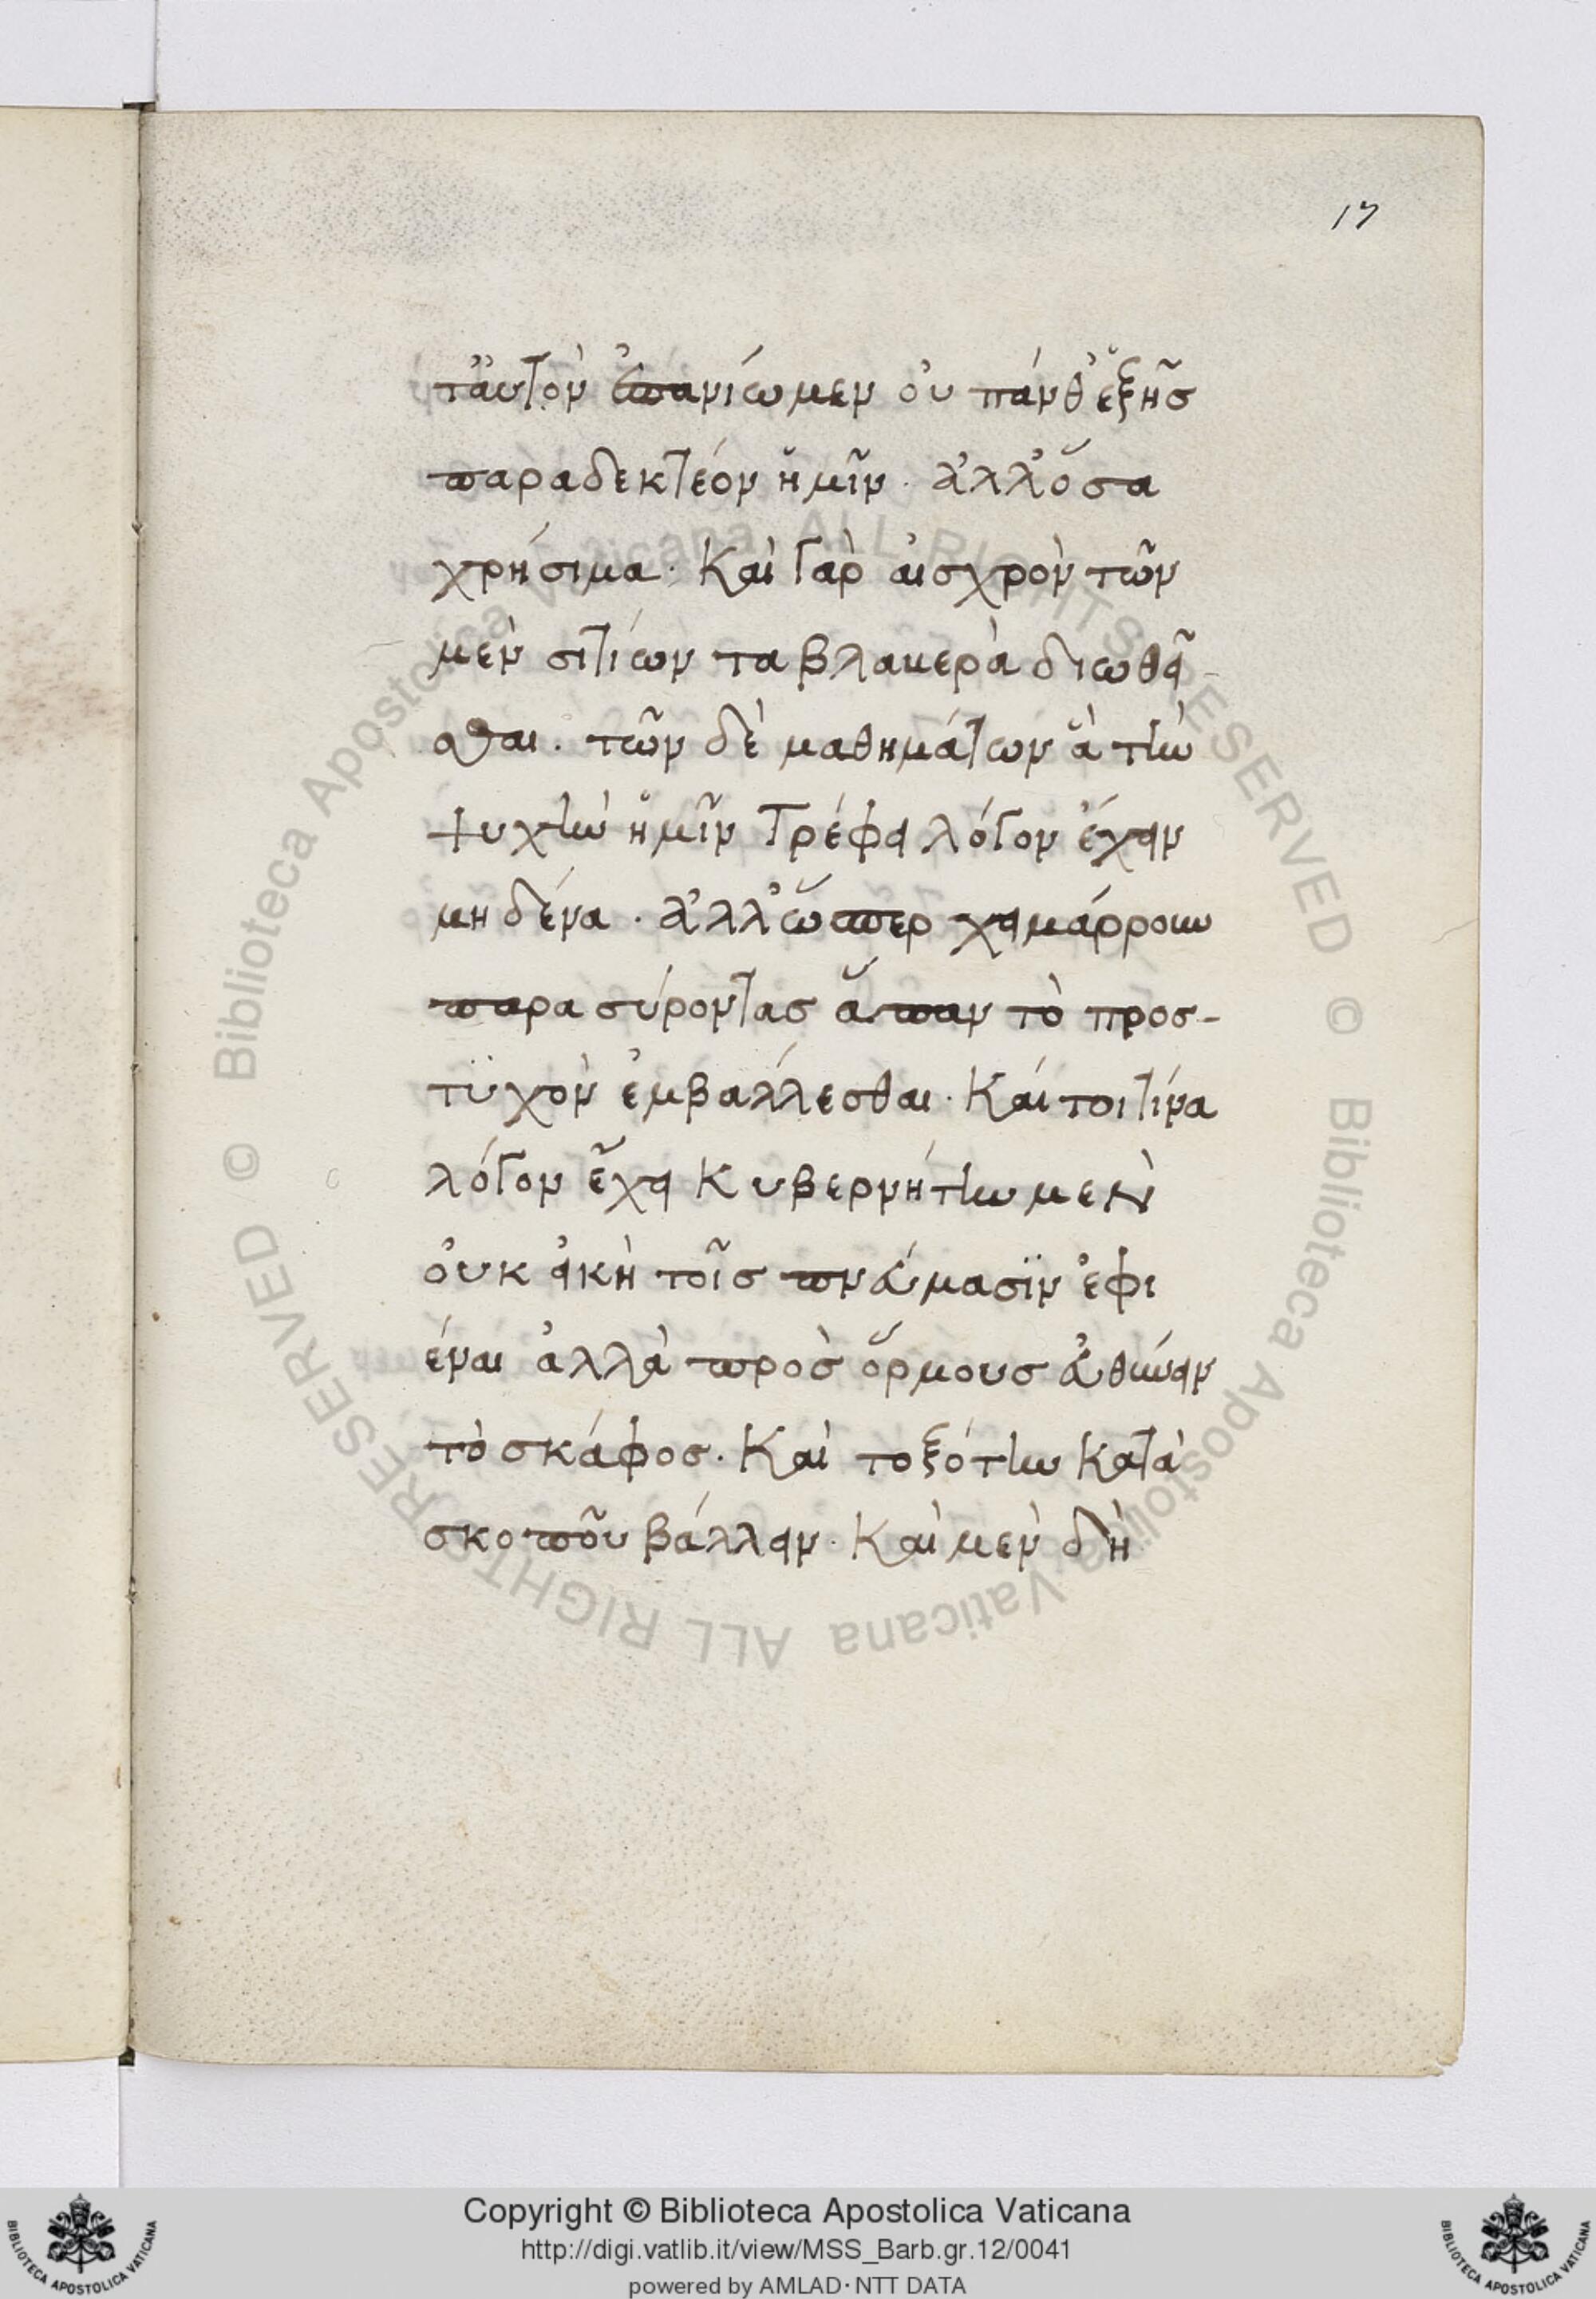 17
ταὐτὸν ἐπανίωμεν οὐ πάνθ' ἑξῆς
παραδεκτέον ἡμῖν· ἀλλ' ὅσα
χρήσιμα· Καὶ γὰρ αἰσχρὸν τῶν
μὲν σιτίων τα βλαβερὰ διωθεῖ-
σθαι· τῶν δὲ μαθημάτων ἃ τὴν
ψυχὴν ἡμῖν τρέφει λόγον ἔχειν
μηδένα· ἀλλ' ὥσπερ χειμάρρουν
παρασύροντας ἅπαν τὸ προσ-
τυχὸν ἐμβάλλεσθαι· Καί τοι τίνα
λόγον ἔχει Κυβερνήτην μὲν
οὐκ εἰκῆ τοῖς πνεύμασϊν ἐφι
έναι ἀλλὰ πρὸς ὅρμους εὐθύνειν
τὸ σκάφος· Καὶ τοξότην Κατὰ
σκοποῦ βάλλειν· Καὶ μὲν δὴ
Biblioteca Apostolica Vaticana ALL RIGHTS RESERVED © Biblioteca Apostolica Vaticana ALL RIGHTS RESERVED ©
Copyright © Biblioteca Apostolica Vaticana
http://digi.vatlib.it/view/MSS_Barb.gr.12/0041
powered by AMLAD·NTT DATA
BIBLIOTECA APOSTOLICA VATICANA
BIBLIOTECA APOSTOLICA VATICANA